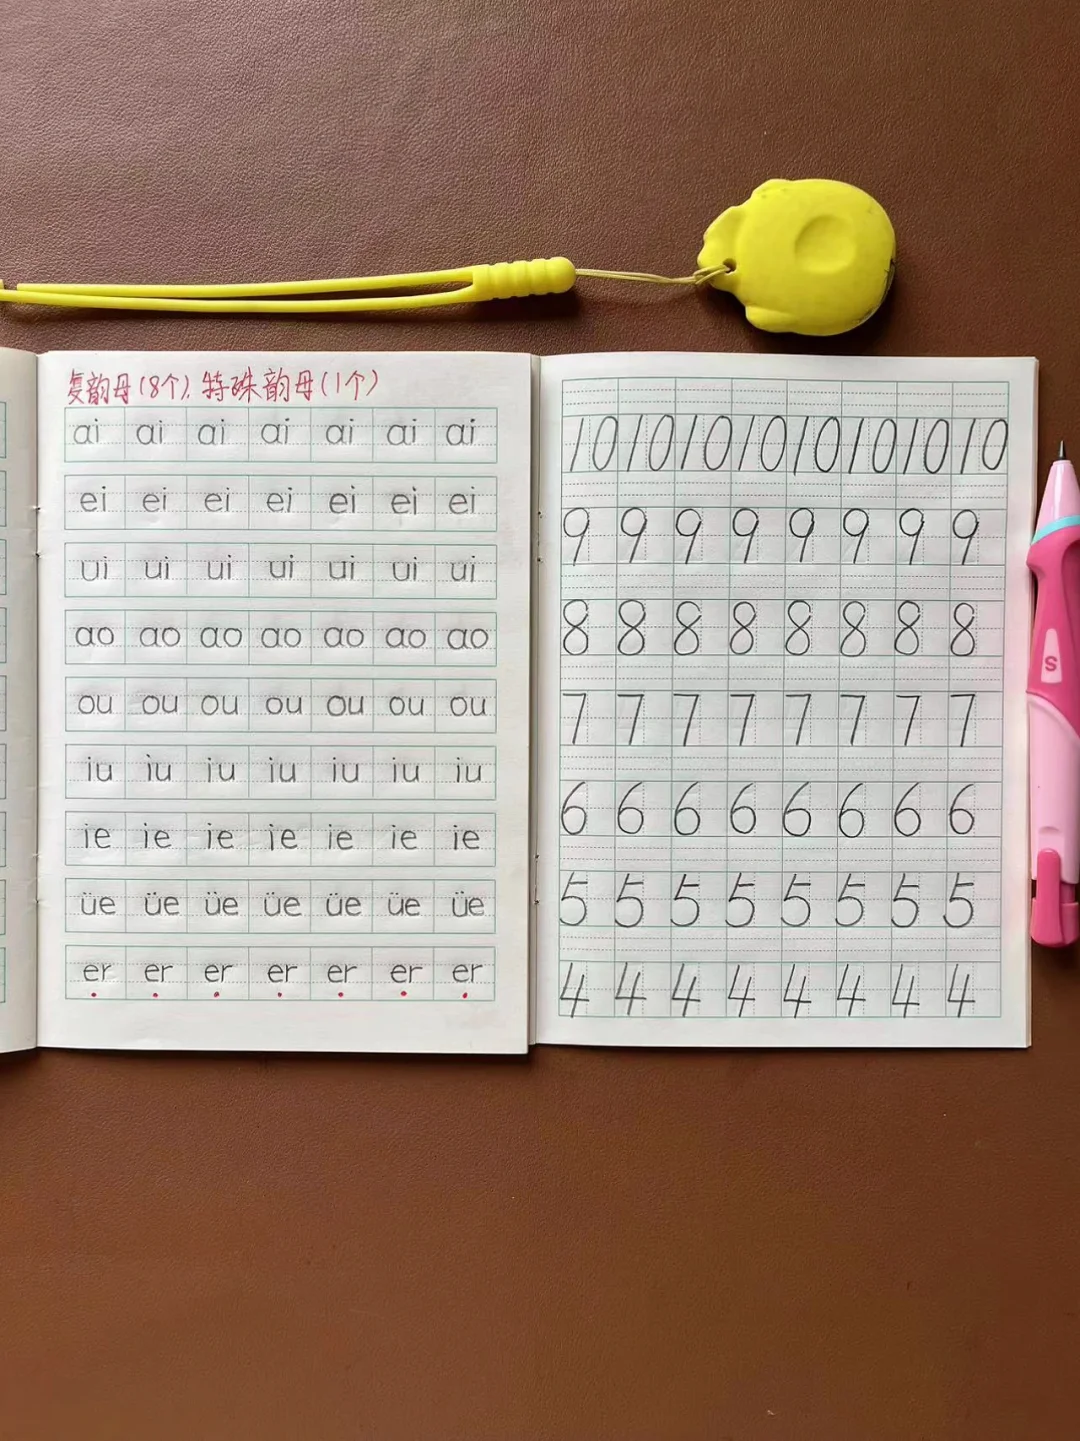 复韵母(8个),特殊韵母(1个)
ai ai ai ai ai ai ai
ei ei ei ei ei ei ei
ui ui ui ui ui ui ui
ao ao ao ao ao ao ao
ou ou ou ou ou ou ou
iu iu iu iu iu iu iu
ie ie ie ie ie ie ie
üe üe üe üe üe üe üe
er er er er er er er
10 10 10 10 10 10 10 10
9 9 9 9 9 9 9 9
8 8 8 8 8 8 8 8
7 7 7 7 7 7 7 7
6 6 6 6 6 6 6 6
5 5 5 5 5 5 5 5
4 4 4 4 4 4 4 4
S